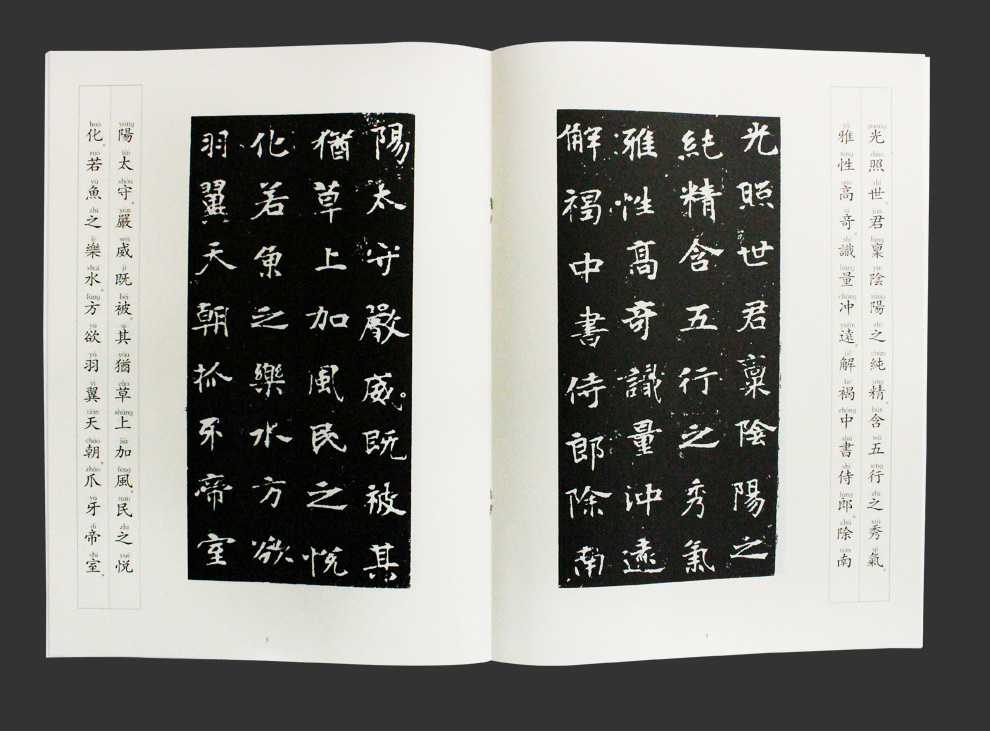 光照世。君稟陰陽之純精。含五行之秀氣。
雅性高奇。識量冲遠。解褐中書侍郎。除南
光照世君稟陰陽之
純精含五行之秀氣
雅性髙奇識量沖遠
解褐中書侍郎除南
陽太守嚴威既被其
猶草上加風民之悅
化若魚之樂水方欲
羽翼天朝抓牙帝室
陽太守。嚴威既被其猶草上加風。民之悅
化。若魚之樂水。方欲羽翼天朝。爪牙帝室。